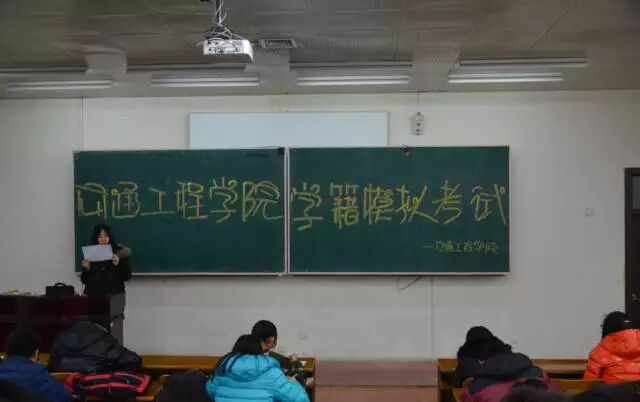 通工程学院学籍模拟考试
通工程学院